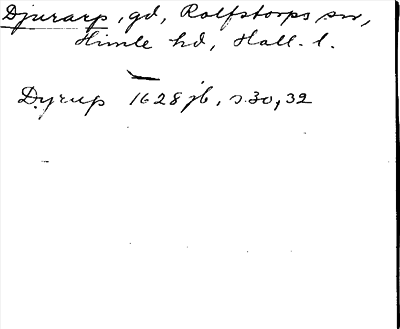 Djurarp, gd, Rolfstorps sn,
Himle hd, Hall. l.
Dyrup 1628 jb, s. 30, 32